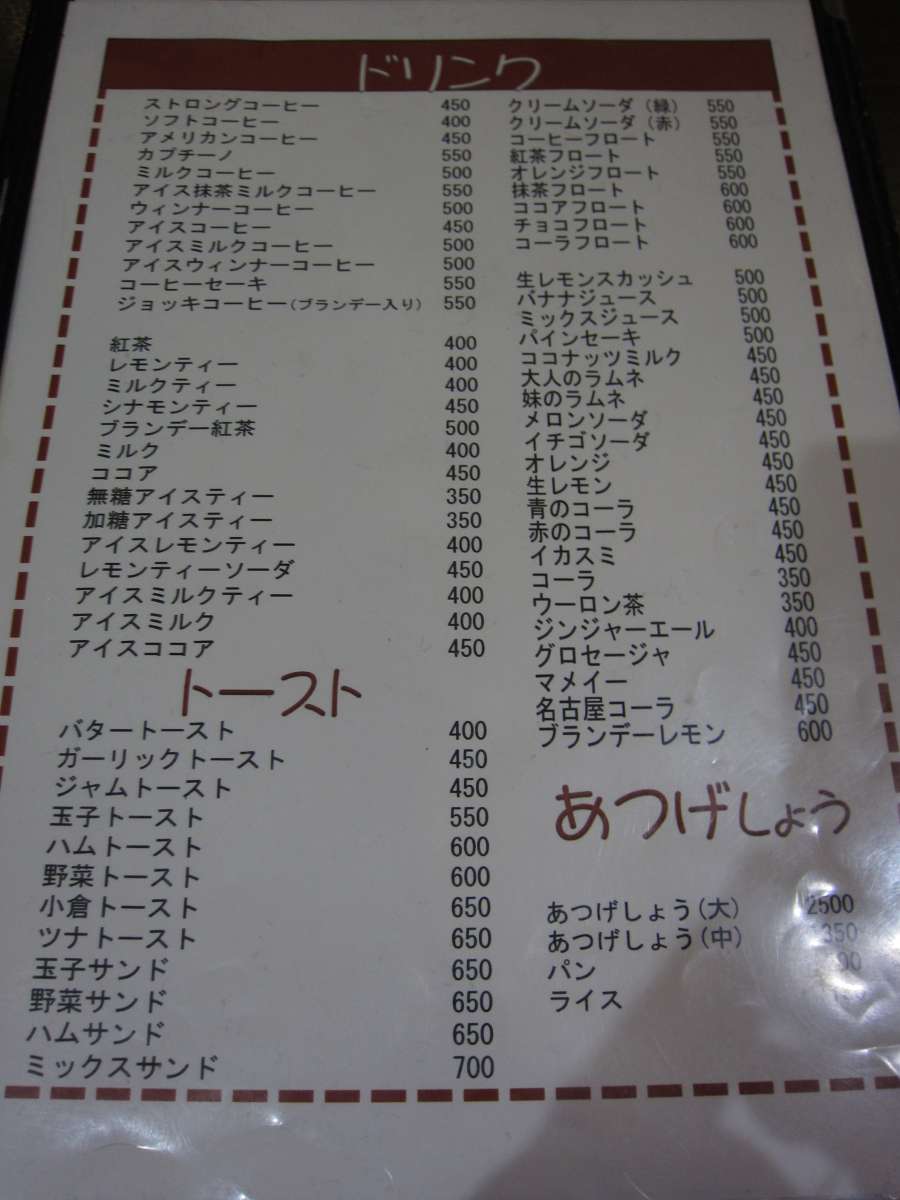 ドリンク
ストロングコーヒー 450
ソフトコーヒー 400
アメリカンコーヒー 450
カプチーノ 550
ミルクコーヒー 500
アイス抹茶ミルクコーヒー 550
ウィンナーコーヒー 500
アイスコーヒー 450
アイスミルクコーヒー 500
アイスウィンナーコーヒー 500
コーヒーセーキ 550
ジョッキコーヒー(ブランデー入り) 550
紅茶 400
レモンティー 400
ミルクティー 400
シナモンティー 450
ブランデー紅茶 500
ミルク 400
ココア 450
無糖アイスティー 350
加糖アイスティー 350
アイスレモンティー 400
レモンティーソーダ 450
アイスミルクティー 400
アイスミルク 400
アイスココア 450
トースト
バタートースト 400
ガーリックトースト 450
ジャムトースト 450
玉子トースト 550
ハムトースト 600
野菜トースト 600
小倉トースト 650
ツナトースト 650
玉子サンド 650
野菜サンド 650
ハムサンド 650
ミックスサンド 700
クリームソーダ(緑) 550
クリームソーダ(赤) 550
コーヒーフロート 550
紅茶フロート 550
オレンジフロート 550
抹茶フロート 600
ココアフロート 600
チョコフロート 600
コーラフロート 600
生レモンスカッシュ 500
バナナジュース 500
ミックスジュース 500
パインセーキ 500
ココナッツミルク 450
大人のラムネ 450
妹のラムネ 450
メロンソーダ 450
イチゴソーダ 450
オレンジ 450
生レモン 450
青のコーラ 450
赤のコーラ 450
イカスミ 450
コーラ 350
ウーロン茶 350
ジンジャーエール 400
グロセージャ 450
マメイー 450
名古屋コーラ 450
ブランデーレモン 600
あつげしょう
あつげしょう(大) 2500
あつげしょう(中)
パン
ライス